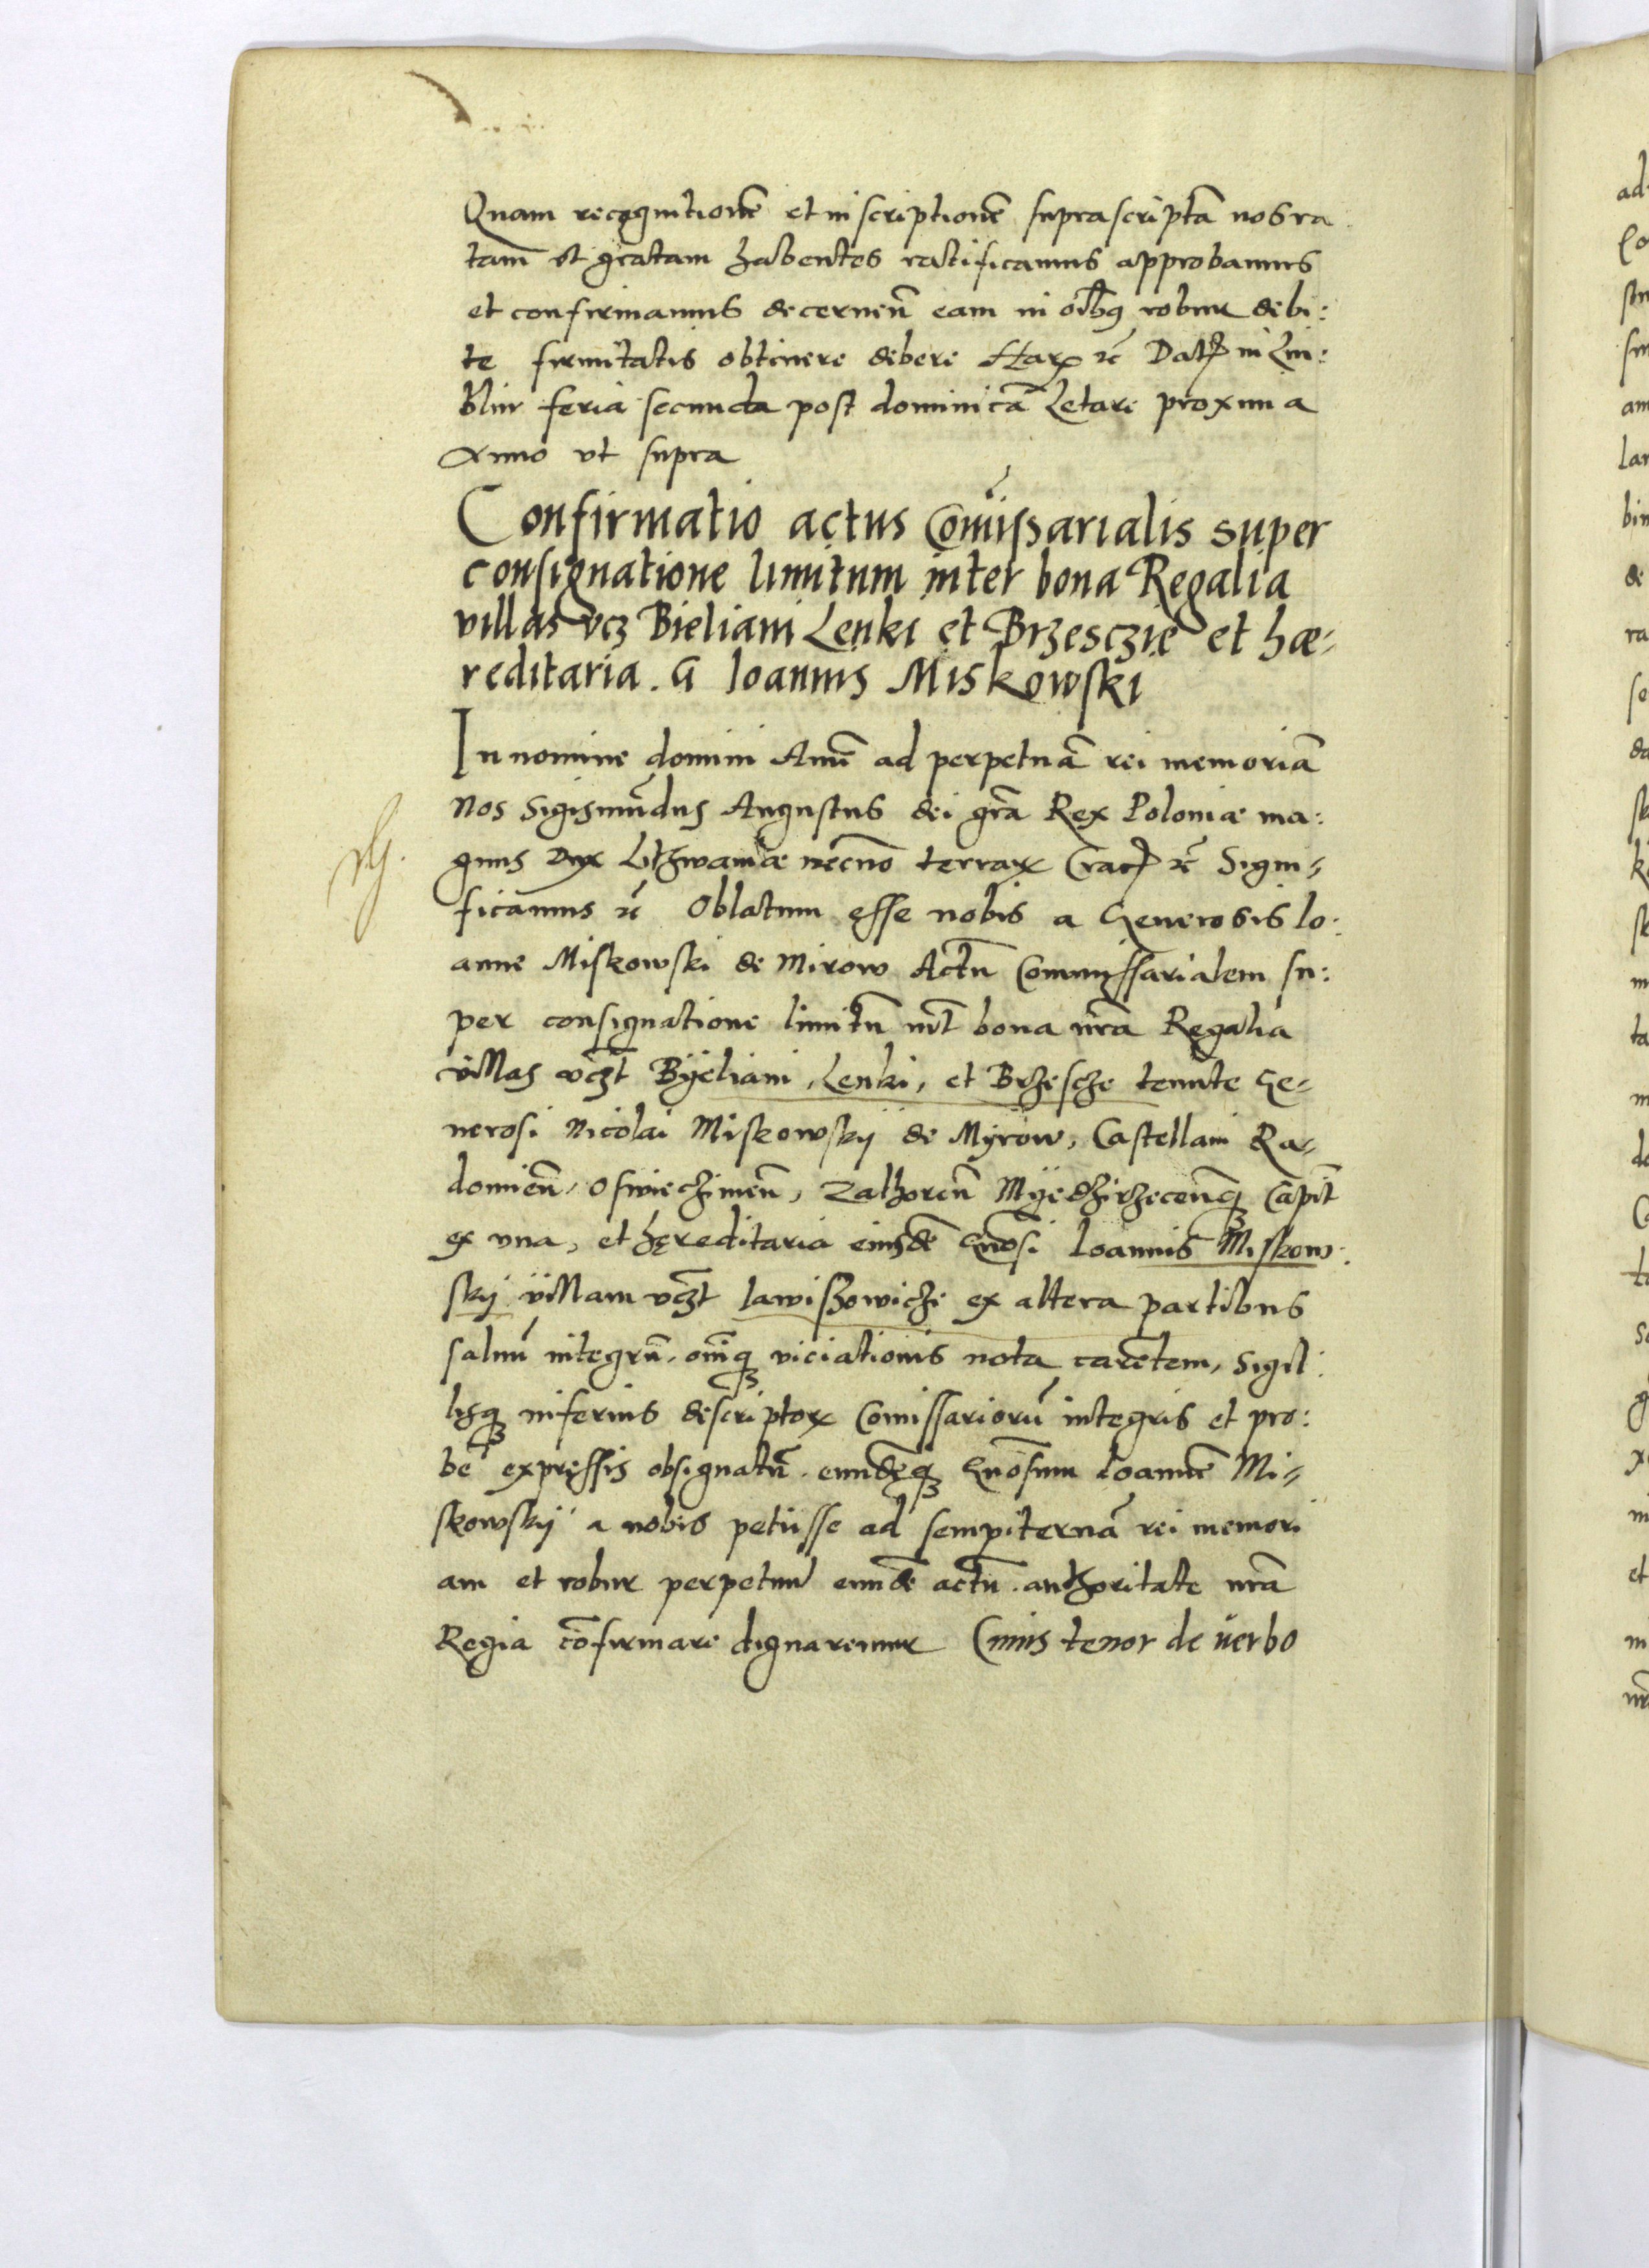 Quam recognitionē et inscriptionē suprascriptā nos ra
tam et gratam habentes ratificamus approbamus
et confirmamus decernen̄ eam in oībus robur debi:
te firmitatis obtinere debere Har. rc̄ Dat. in Lu:
blin feria secunda post dominicā Letare proxima
Anno vt supra
Confirmatio actus Com̄issarialis super
consignatione limitum inter bona Regalia
villas vcz Bieliani Lenki et Brzesczie et hæ-
reditaria. G Ioannis Miskowski
In nomine domini Amē ad perpetuā rei memoriā
Nos Sigismūdus Augustus dei gr̄a Rex Poloniæ ma:
gnus Dux Lthwaniæ necno terrar. Crac. rc̄ Signi-
ficamus rc̄ Oblatum esse nobis a Generosis Io:
anne Miskowski de Mirow Actū Commissarialem su:
per consignatione limitū int̄ bona nr̄a Regalia
villas vcz̄t Byeliani, Lenki, et Brzescze tenute Ge-
nerosi Nicolai Miskowsky de Myrow, Castellani Ra-
domien̄, Oswieczimen̄, Zathoren̄ Myedzirzecen̄q Capit̄
ex vna, et hęreditaria eiusdē Gn̄osi Ioannis Miskow:
sky villam vcz̄t Iawiszowicze ex altera partibus
saluū integrū, om̄iq viciationis nota carētem, Sigil:
lisq inferius descriptor. Comissariorū integris et pro:
be expressis obsignatū. eundēq Gn̄osum Ioannē Mi-
skowsky a nobis petiisse ad sempiternā rei memori
am et robur perpetuū eundē actū authoritate nr̄a
Regia cōfirmare dignaremur Cuius tenor de verbo